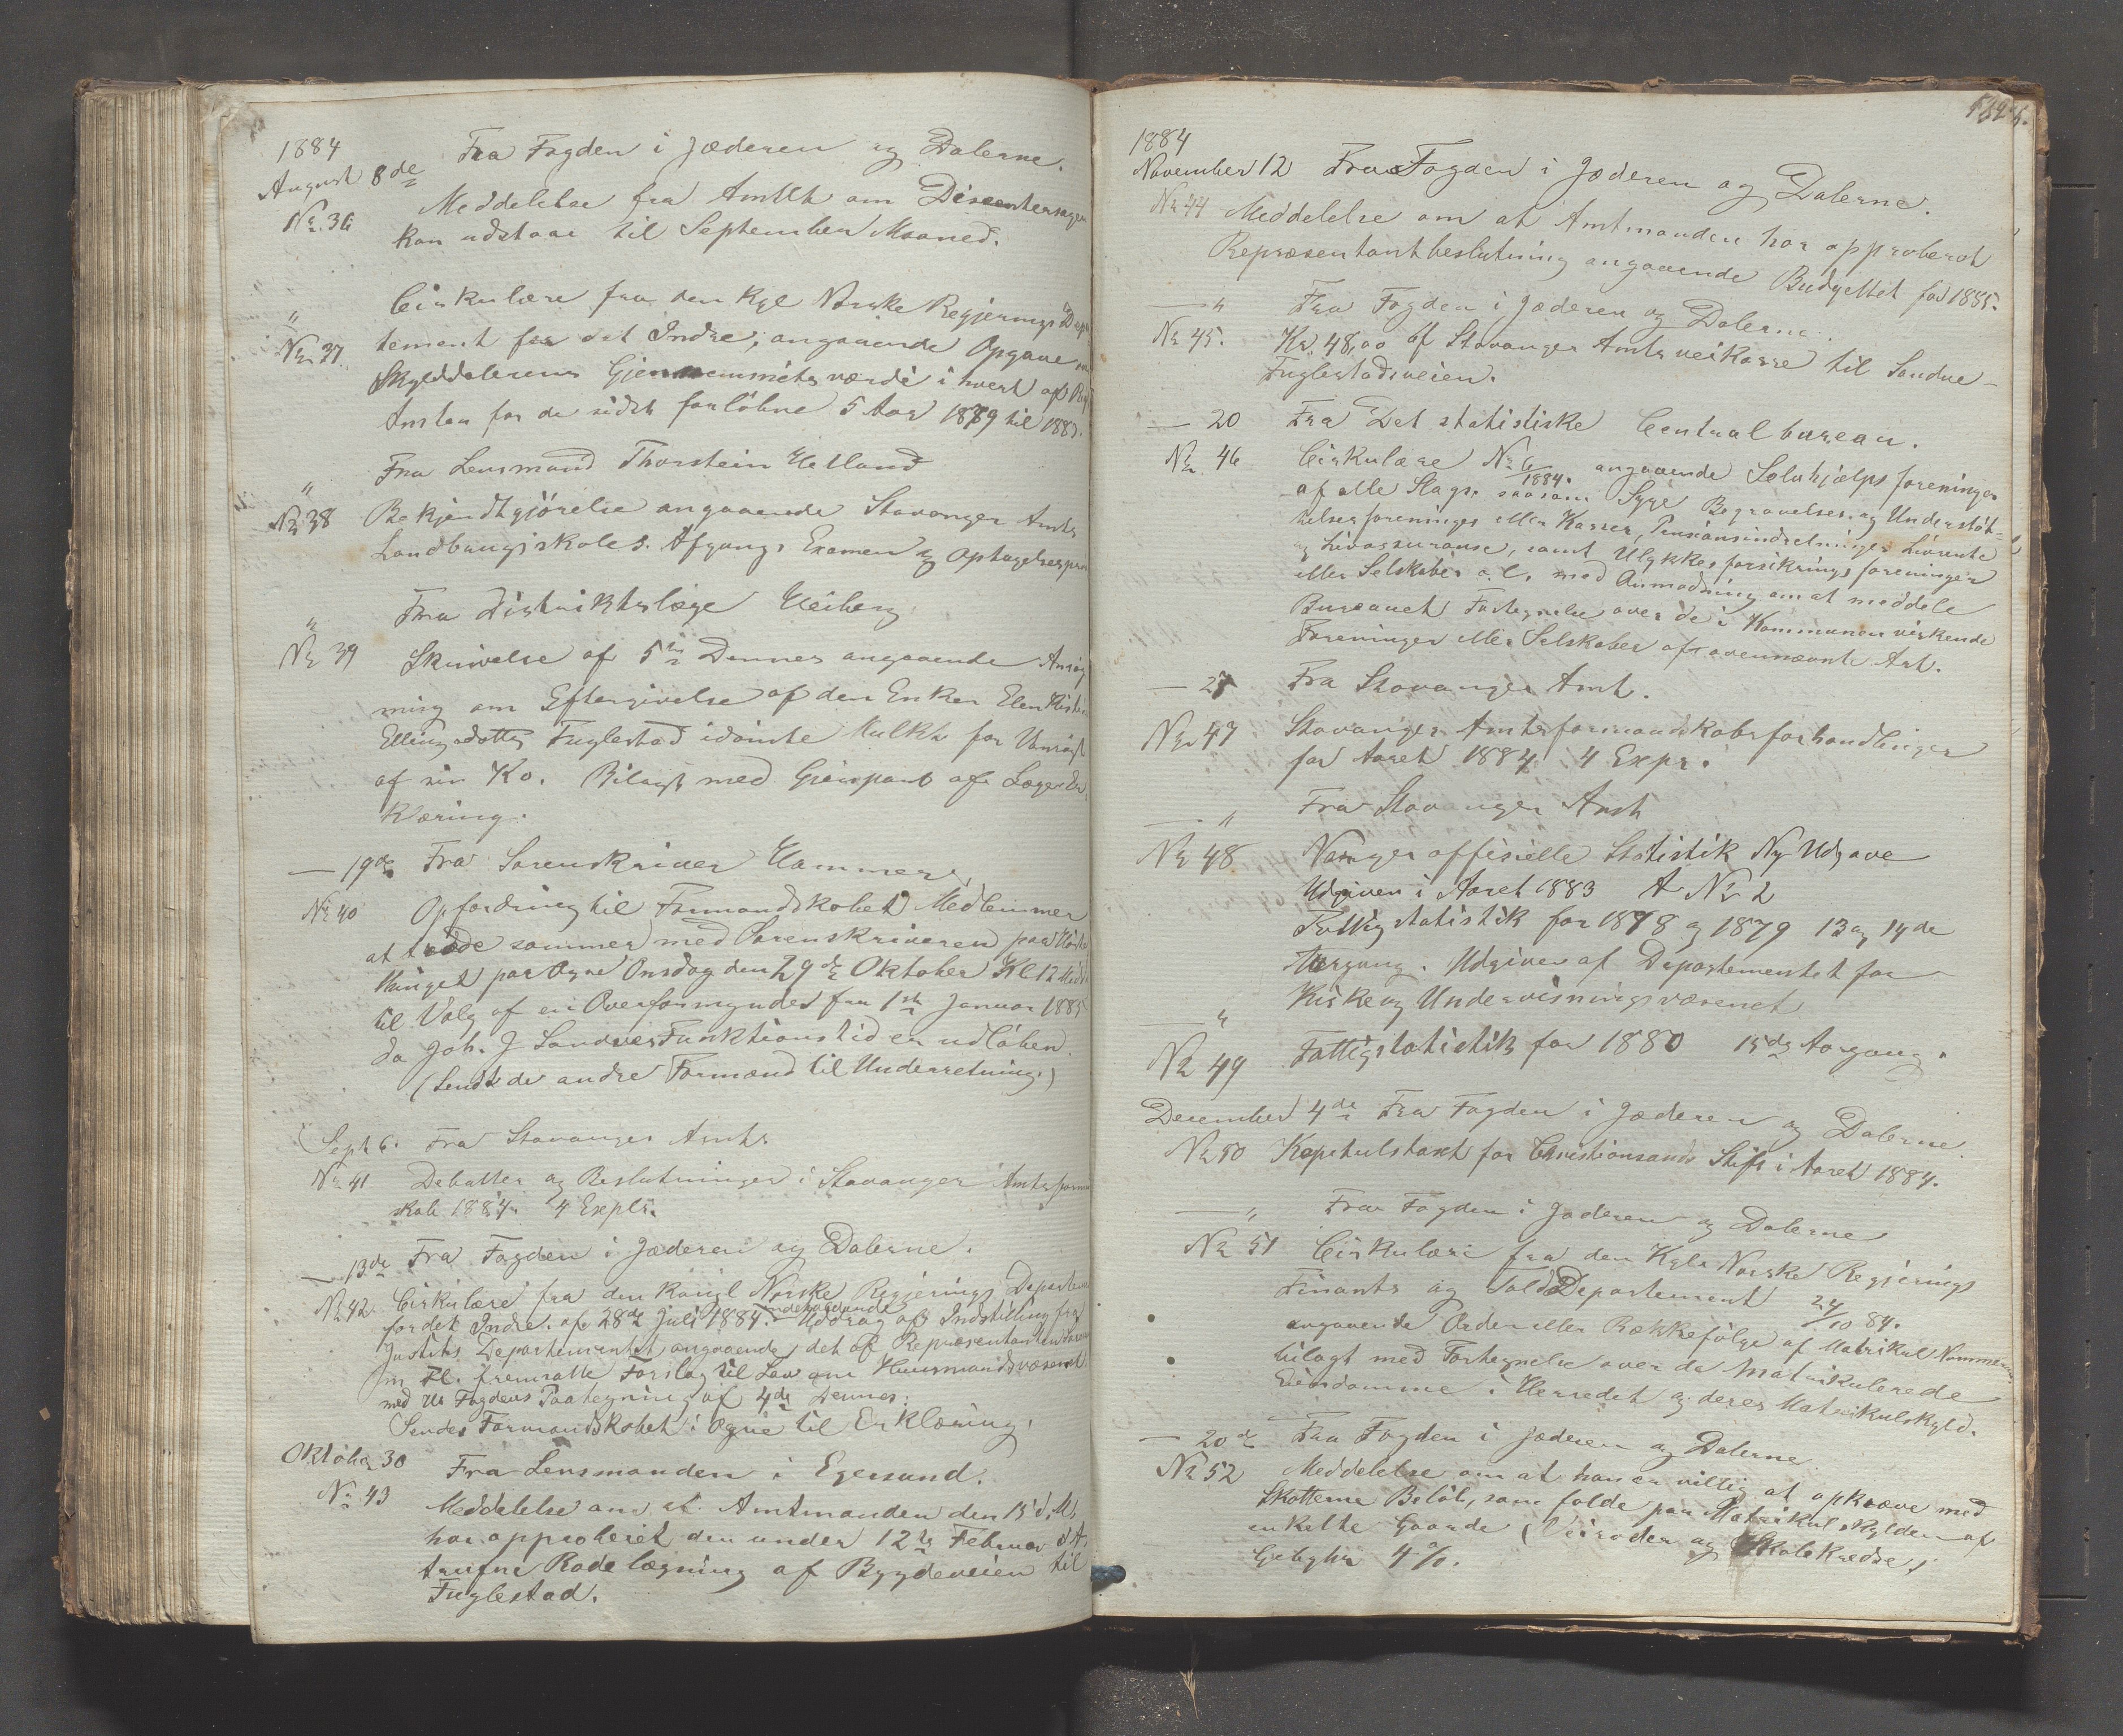 1884
August 8de
Fra Fogden i Jæderen og Dalerne.
Nr. 36
Meddelelse fra Amtet om Dissentersagen
kan udstaae til September Maaned.
"
Nr 37
Cirkulære fra den Kgl Norske Regjerings Depar
tement for det Indre, angaaende Opgave
Skylddalerens Gjennemsnitsværdi i hvert af
Amter for de sidst forløbne 5 Aar 1879 til 1883.
"
Fra Lensmand Thorstein Hetland
Nr 38
Bekjendtgjørelse angaaende Stavanger Amts
Landbrugsskoles Afgangs Examen og Optagelsesprø
"
Fra Distriktslæge Heiberg
Nr 39
Skrivelse af 5te Dennes angaaende Ansøg
ning om Eftergivelse af den Enken Elen
Ellingsdatter Fuglestad idømte Mulkt for Vanrøgt
af sin Ko. Bilagt med Gjenpart af Læge Er
klæring.
— 19de
Fra Sorenskriver Hammer,
Nr 40
Opfordring til Formandskabet Medlemmer
at træde sammen med Sorenskriveren paa Høste
thinget paa Ogne Onsdag den 29de Oktober Kl 12 Midd
til Valg af en Overformynder fra 1ste Januar 1885
da Joh. J Sandves Funktionstid er udløben.
(Sendt de andre Formænd til Underretning.)
Sept 6.
Fra Stavanger Amt.
Nr 41
Debatter og Beslutninger i Stavanger Amtsforman
skab 1884. 4 Explr.
— 13de
Fra Fogden i Jæderen og Dalerne.
Nr 42.
Cirkulære fra den Kongl Norske Regjerings Departeme
for det Indre. af 28de Juli 1884. indeholdende Uddrag af Indstilling fra
Justits Departementet angaaende det af Repræsentanten
m Fl. fremsatte Forslag til Lov om Huusmandsvæsenet
med Hr Fogdens Paategning af 4de Dennes.
Sendes Formandskabet i Ogne til Erklæring.
Oktober 30
Fra Lensmanden i Egersund.
Nr 43
Meddelelse om at Amtmanden den 15 d. M.
har approberet den under 12te Februar d A.
trufne Rodelægning af Bygdeveien til
Fuglestad.
1884
November 12
Fra Fogden i Jæderen og Dalerne.
Nr 44
Meddelelse om at Amtmanden har approberet
Repræsentantbeslutning angaaende Budgettet for 1885.
— "
Fra Fogden i Jæderen og Dalerne.
Nr 45.
Kr. 48,00 af Stavanger Amts veikasse til Sandve-
Fuglestadveien.
— 20
Fra Det statistiske Centralbureau.
Nr 46
Cirkulære Nr 6 1884. angaaende Selvhjælpsforeninger
af alle Slags. saasom Syge Begravelses. og Understøt-
telsesforeninger eller Kasser, Pensionsindretninger Livrente
og Livassurance, samt Ulykkesforsikringsforeninger
eller Selskaber o. l. med Anmodning om at meddele
Bureauet Fortegnelse over de i Kommunen virkende
Foreninger eller Selskaber af ovennævnte Art.
— 27
Fra Stavanger Amt.
Nr 47
Stavanger Amtsformandskabsforhandlinger
for Aaret 1884 4 Expr.
— "
Fra Stavanger Amt
Nr 48
Norges offisielle Statistik Ny Udgave
Udgiven i Aaret 1883 A Nr 2
Fattigstatistik for 1878 og 1879 13 og 14de
Aargang. Udgiven af Departementet for
Kirke og Undervisningsvæsenet
— "
Nr 49
Fattigstatistik for 1880 15de Aargang.
December 4de
Fra Fogden i Jæderen og Dalerne.
Nr 50
Kapitulstaxt for Christiansands Stift i Aaret 1884.
— "
Fra Fogden i Jæderen og Dalerne
Nr 51
Cirkulære fra den Kgle Norske Regjerings
Finants og Told Departement 24/10 84.
angaaende Orden eller Rækkefølge af Matrikul Nummerne.
bilagt med Fortegnelse over de matrikulerede
Eiendomme i Herredet og deres Matrikulskyld.
— 20de
Fra Fogden i Jæderen og Dalerne.
Nr 52
Meddelelse om at han er villig at opkræve med
Skatterne Beløb, som falde paa Matrikulskylden af
enkelte Gaarde (Veiroder og Skolekredse,)
Gebyhr 4%.